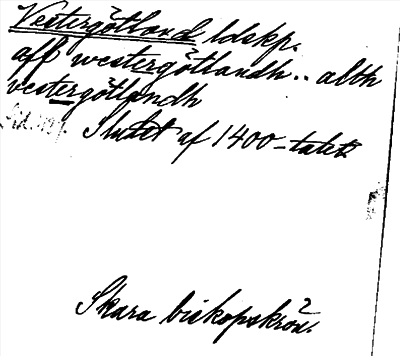 Vestergötland ldskp.
aff westergötlandh.. alth
vestergötlandh
Slutet af 1400-talet
Skara biskopskrön.